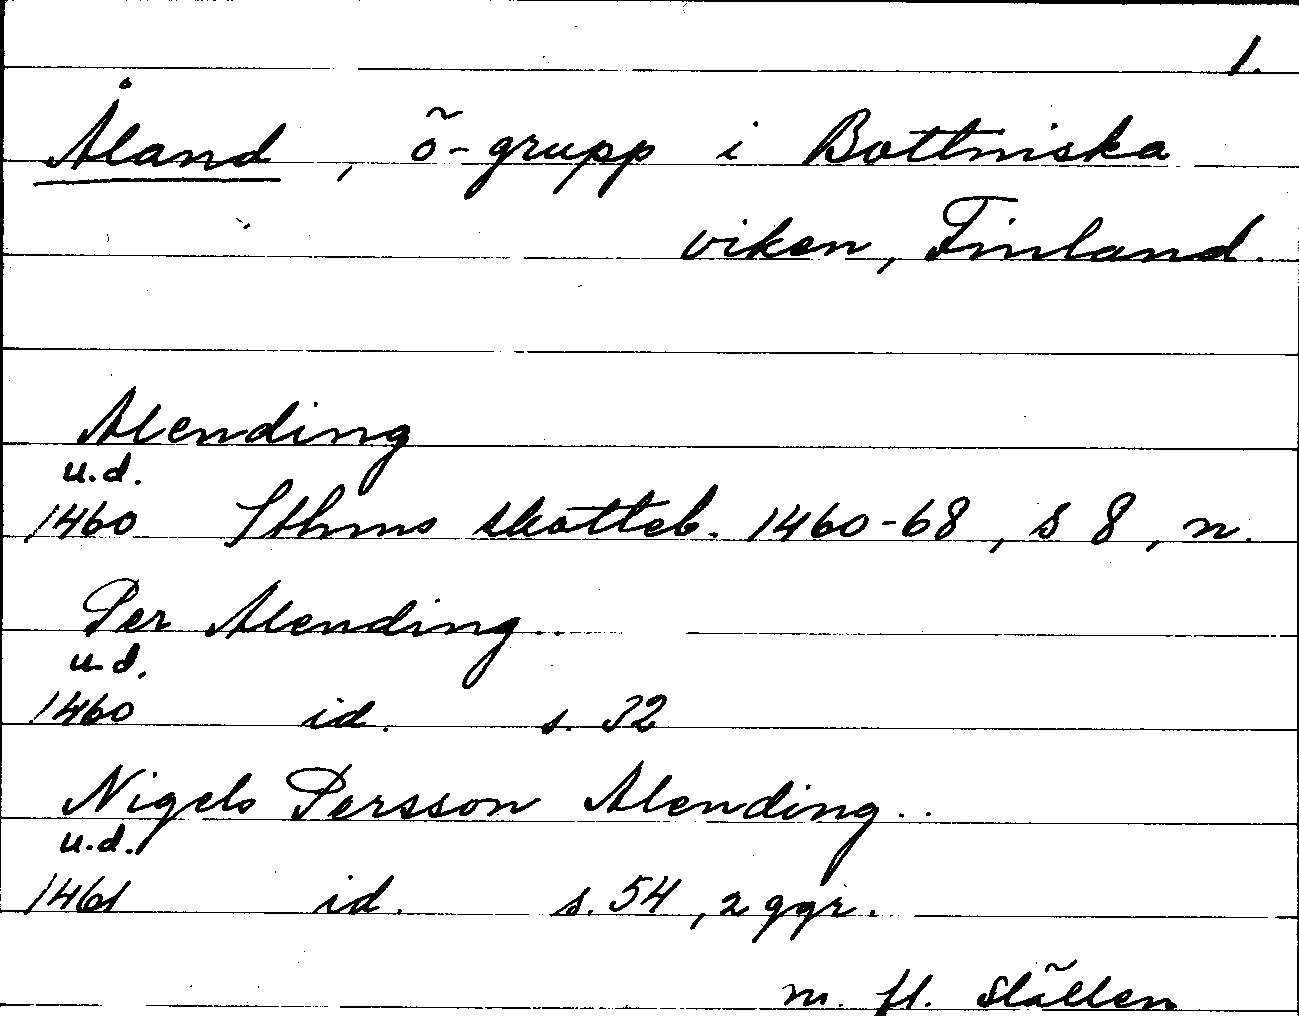 1.
Åland, ö-grupp i Bottniska
viken, Finland.
Alending
u.d.
1460 Sthms skotteb. 1460-68, s 8, n.
Per Alending..
u.d.
1460 id. s. 32
Nigels Persson Alending..
u.d.
1461 id. s. 54, 2 ggr.
m. fl. ställen